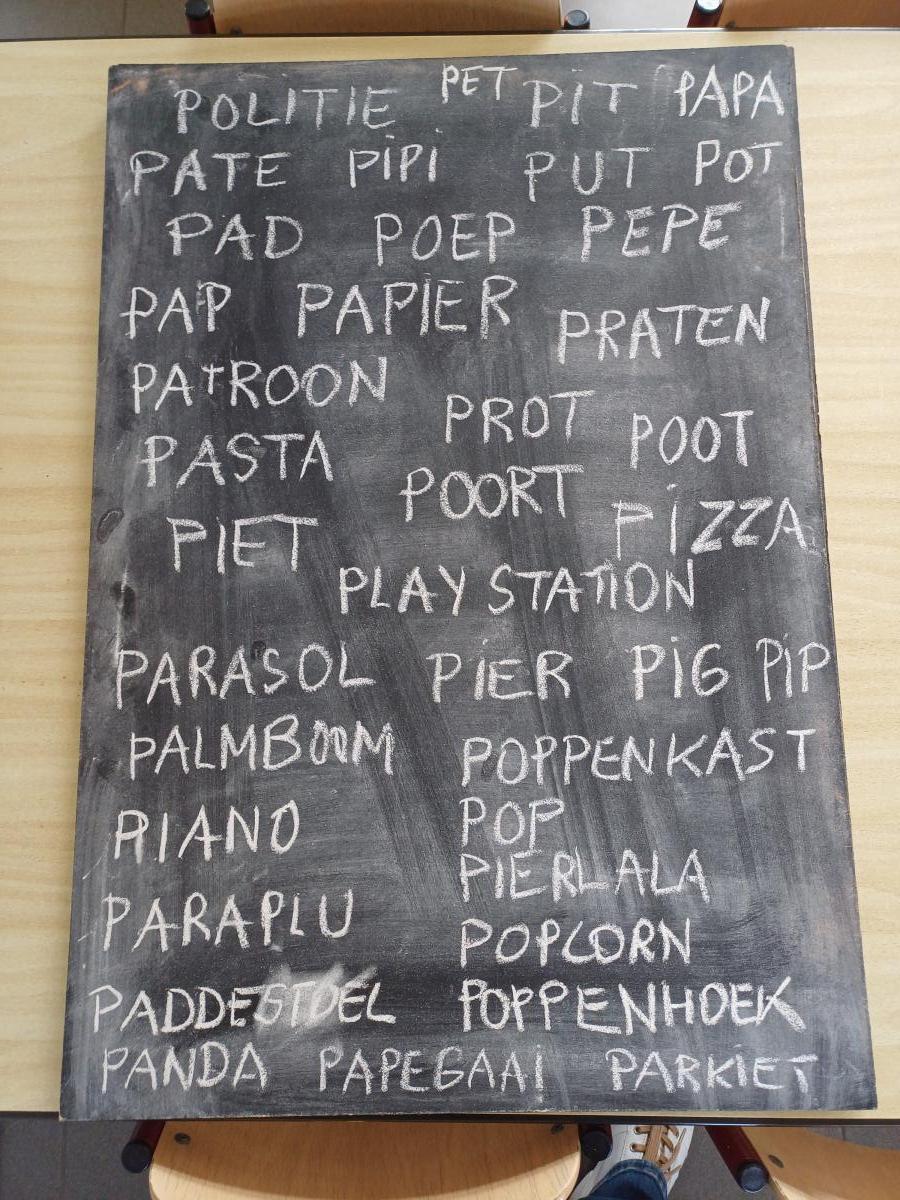 POLITIE PET PIT PAPA
PATE PiPi PUT POT
PAD POEP PEPE
PAP PAPIER PRATEN
PATROON PROT POOT
PASTA POORT PiZZA
PIET PLAYSTATION
PARASOL PiER PiG PiP
PALMBOOM POPPENKAST
PIANO POP
PIERLALA
PARAPLU POPCORN
PADDESTOEL POPPENHOEK
PANDA PAPEGAAi PARKiET